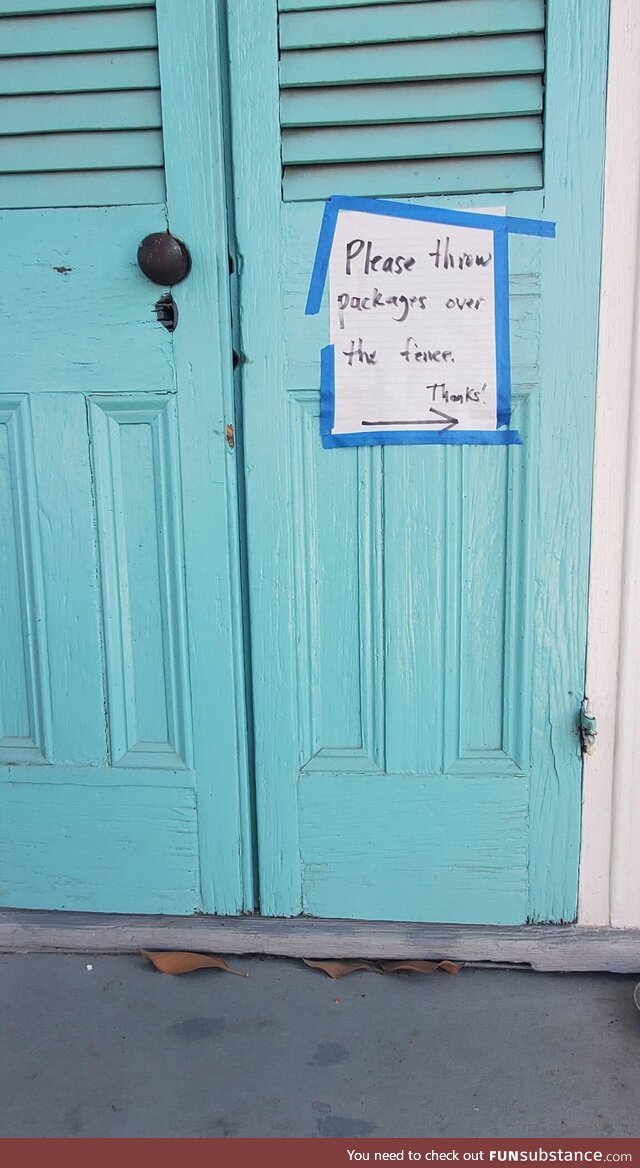 Please throw
packages over
the fence.
Thanks!
You need to check out FUNsubstance.com